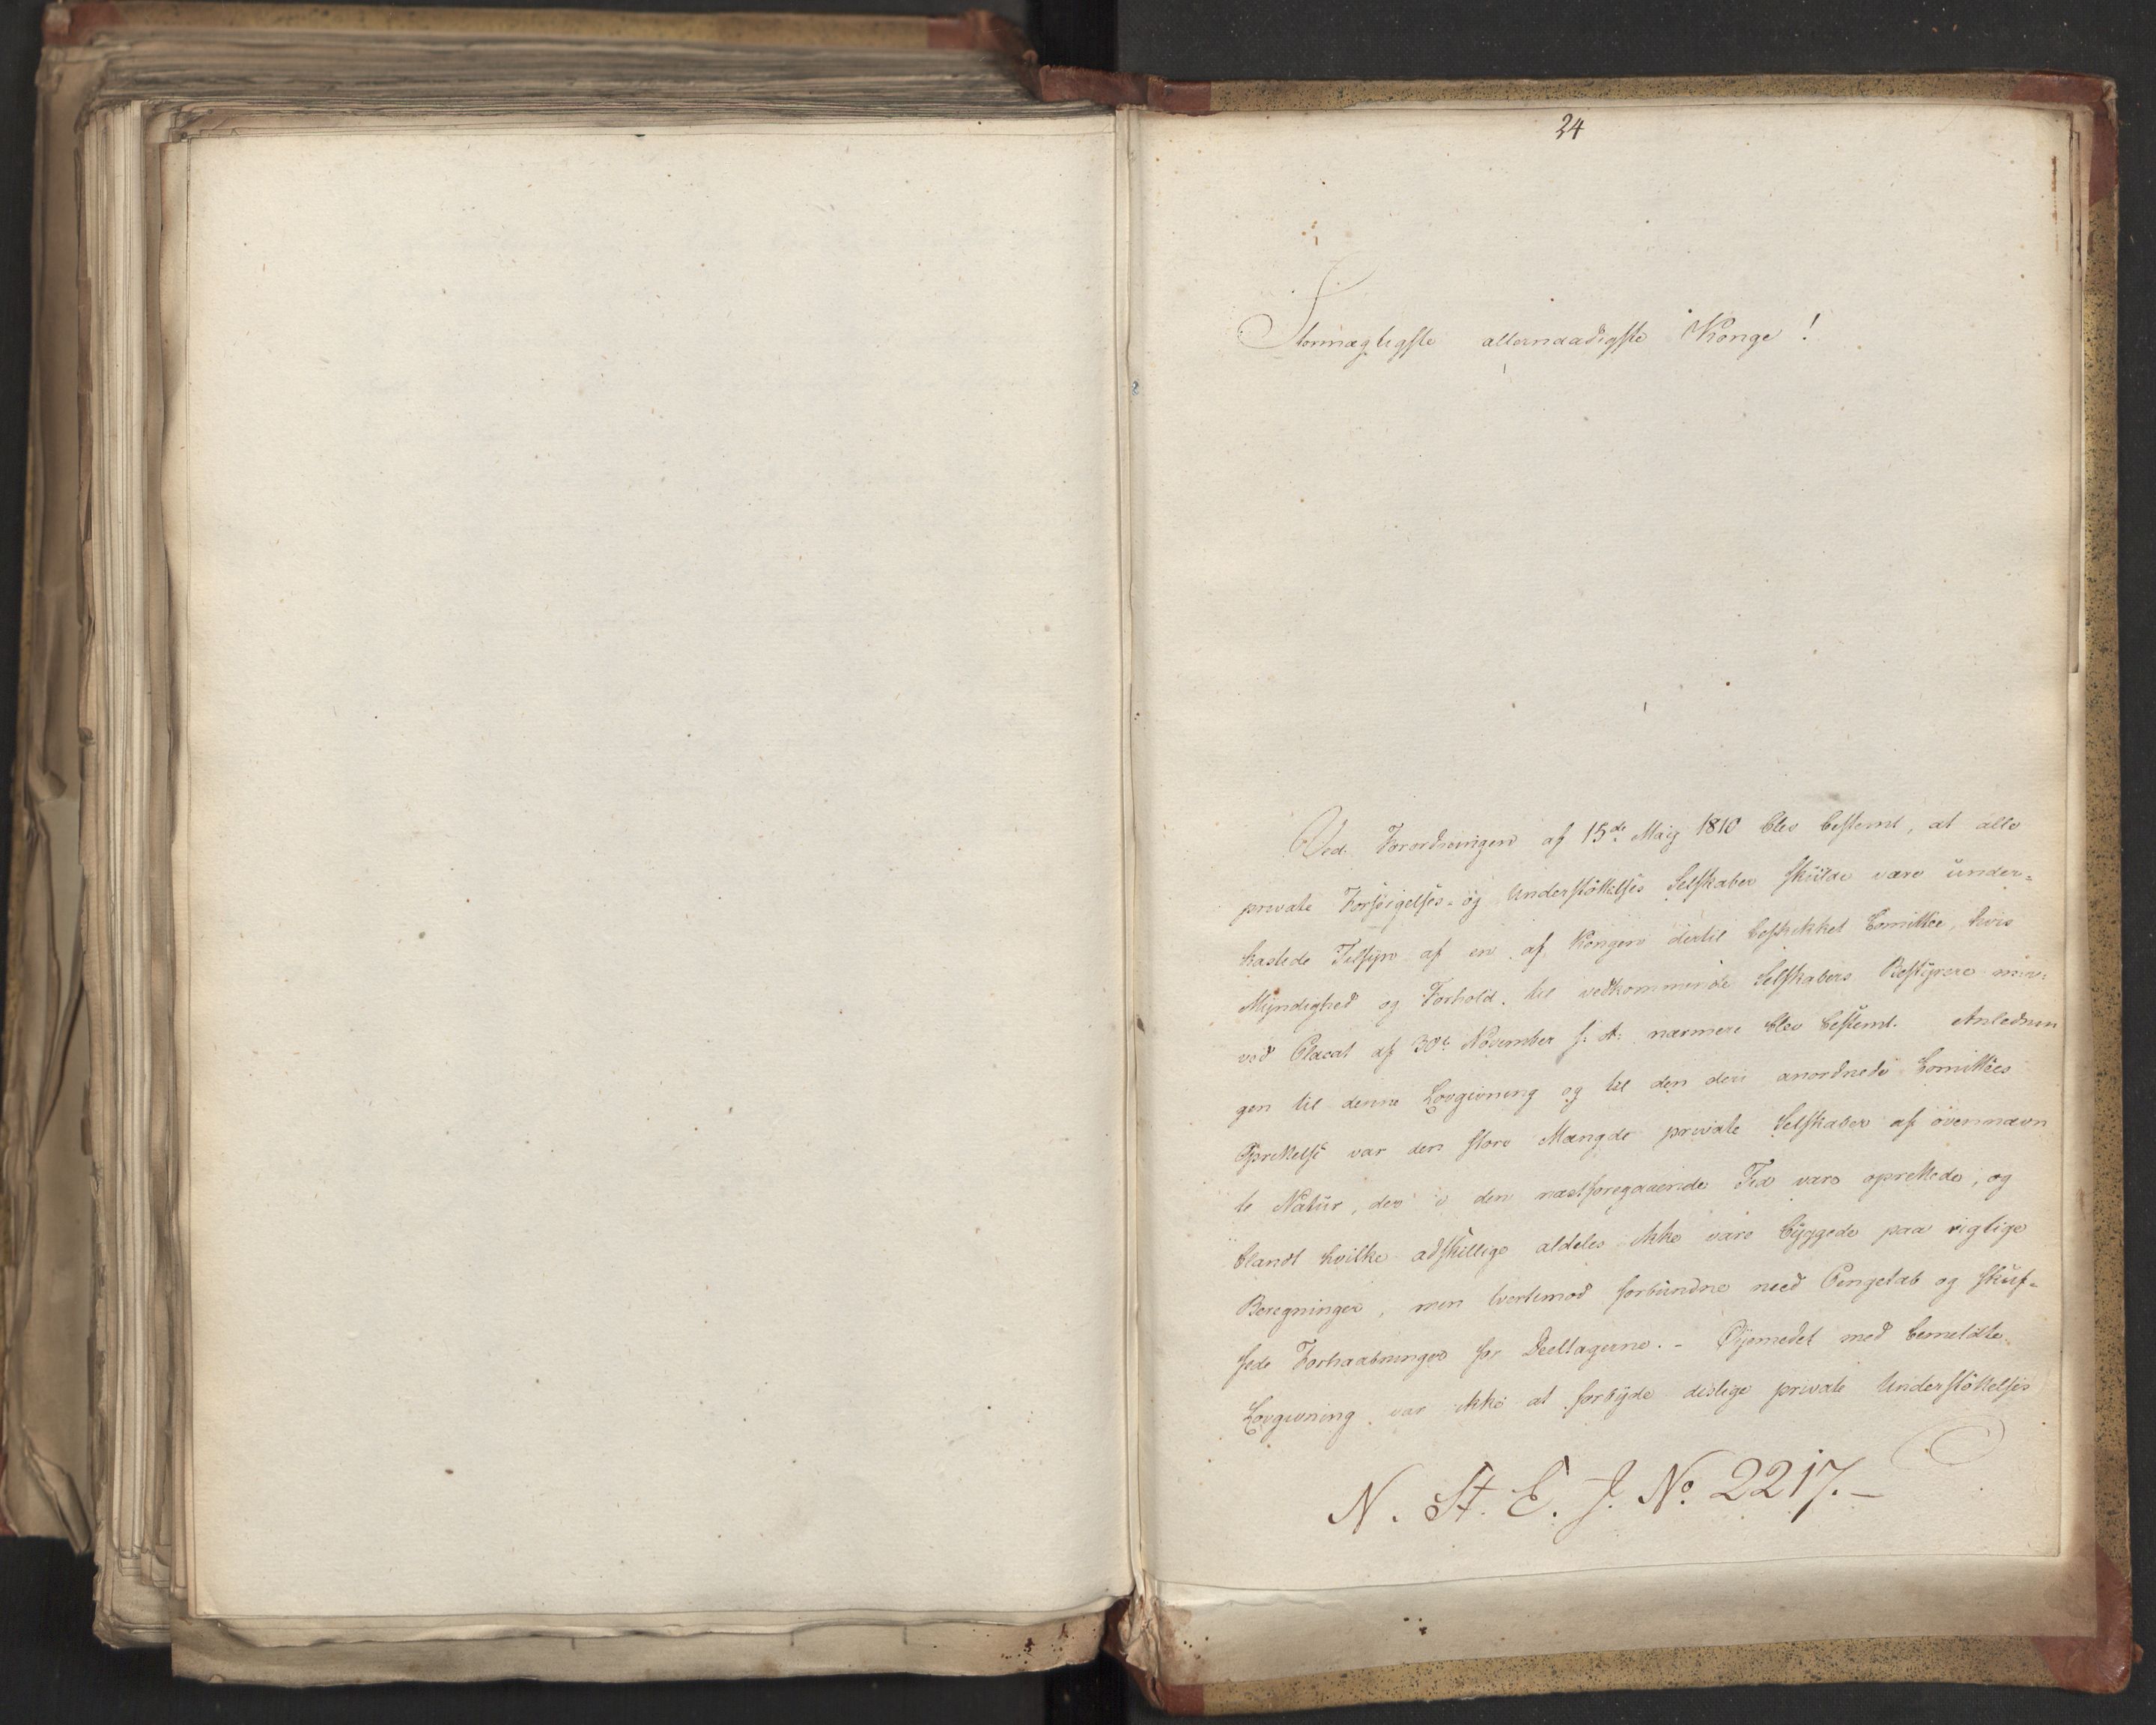 24
Stormægtigste allernaadigste Konge!
Ved Forordningen af 15de Maij 1810 blev bestemt, at alle
private Forsørgelses- og Understøttelses Selskaber skulde være under-
kastede Tilsyn af en af Kongen dertil beskikket Comittee, hvis
Myndighed og Forhold til vedkommende Selskabers Bestyrere
ved Placat af 30te November s. A. nærmere blev bestemt. Anlednin
gen til denne Lovgivning og til den deri anordnede Comittees
Oprettelse var den store Mængde private Selskaber af ovennævn
te Natur, der i den næstforegaaende Tid vare oprettede, og
blandt hvilke adskillige aldeles ikke vare byggede paa rigtige
Beregninger, men tvertimod forbundne med Pengetab og skuf-
fede Forhaabninger for Deeltagerne. - Øjemedet med bemeldte
Lovgivning var ikke at forbyde deslige private Understøttelses
N. St. E. J. No. 2217.-